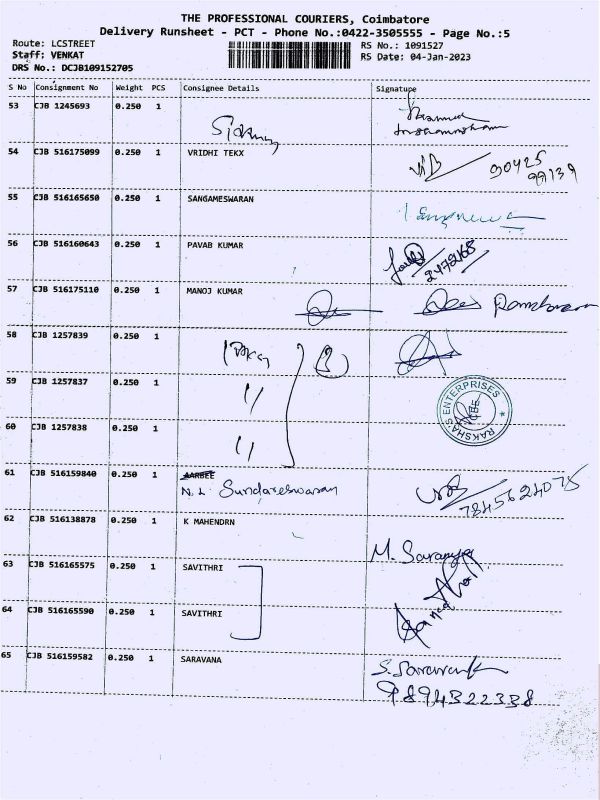 THE PROFESSIONAL COURIERS, Coimbatore
Delivery Runsheet - PCT - Phone No.:0422-3505555 - Page No.:5
Route: LCSTREET
RS No.: 1091527
Staff: VENKAT
RS Date: 04-Jan-2023
DRS No.: DCJB109152705
S No Consignment No Weight PCS Consignee Details Signature
53 CJB 1245693 0.250 1
54 CJB 516175099 0.250 1 VRIDHI TEKX 90425
99139
55 CJB 516165650 0.250 1 SANGAMESWARAN
56 CJB 516160643 0.250 1 PAVAB KUMAR
2472468
57 CJB 516175110 0.250 1 MANOJ KUMAR
58 CJB 1257839 0.250 1
59 CJB 1257837 0.250 1 "
RAKSHA'S ENTERPRISES
CBE
60 CJB 1257838 0.250 1 "
61 CJB 516159840 0.250 1 AARBEE
N.L. Sundareswaran 7845624075
62 CJB 516138878 0.250 1 K MAHENDRN
M. Saranya
63 CJB 516165575 0.250 1 SAVITHRI
64 CJB 516165590 0.250 1 SAVITHRI
65 CJB 516159582 0.250 1 SARAVANA
9894322338